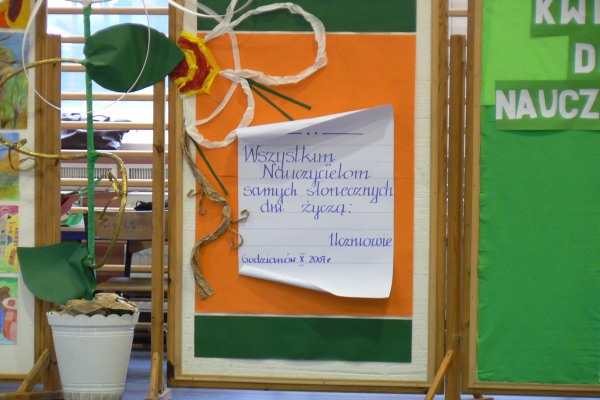 Wszystkim
Nauczycielom
samych słonecznych
dni życzą:
Uczniowie
Godzianów X 2009 r
KWI
D
NAUCZ